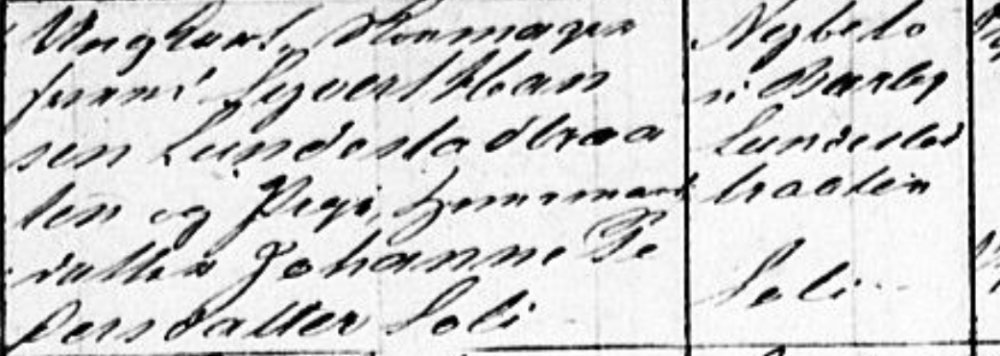 Ungkarl, Skomager
Syvert Han
sen Lundestadbraa
ten og Pige, Husmand
datter Johanne Pe
dersdatter Soli
Nybelo
i Varby
Lundestad
braaten
Soli